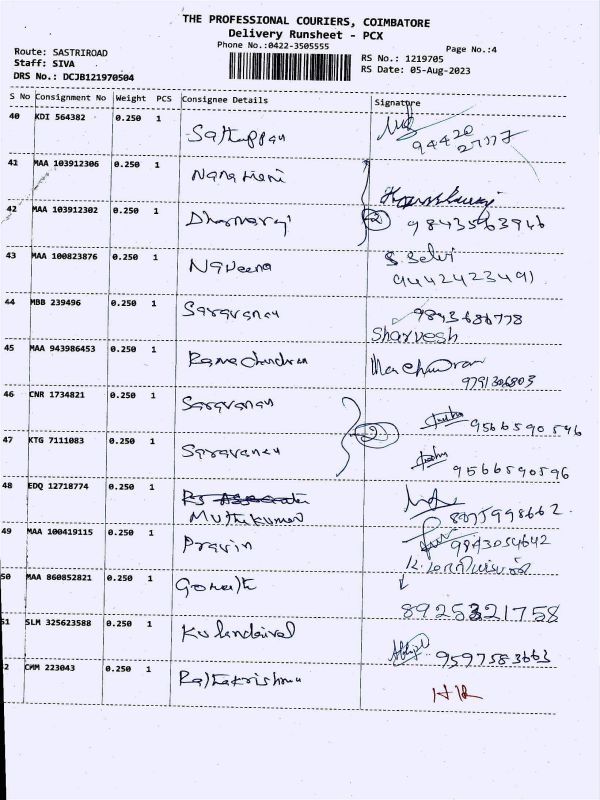 THE PROFESSIONAL COURIERS, COIMBATORE
Delivery Runsheet - PCX
Phone No.:0422-3505555
Page No.:4
Route: SASTRIROAD
Staff: SIVA
DRS No.: DCJB121970504
RS No.: 1219705
RS Date: 05-Aug-2023
S No Consignment No Weight PCS Consignee Details Signature
40 KDI 564382 0.250 1 Sathappan
94420
27117
41 MAA 103912306 0.250 1
42 MAA 103912302 0.250 1 Dharmaraj 2 9843563946
43 MAA 100823876 0.250 1 Naveena S. Selvi
9442423491
44 MBB 239496 0.250 1 Saravanan 9843686778
Sharvesh
45 MAA 943986453 0.250 1 Ramachandran
9791306803
46 CNR 1734821 0.250 1 Saravanan 9566590596
47 KTG 7111083 0.250 1 Saravanan 2 9566590596
48 EDQ 12718774 0.250 1 Rs Associates
Muthukumar 8975998662
49 MAA 100419115 0.250 1 Pravin 9843054642
50 MAA 860852821 0.250 1 Gomathi
8925321758
51 SLM 325623588 0.250 1 Kulandaivel 9597583663
2 CMM 223043 0.250 1 Rajtakrishna